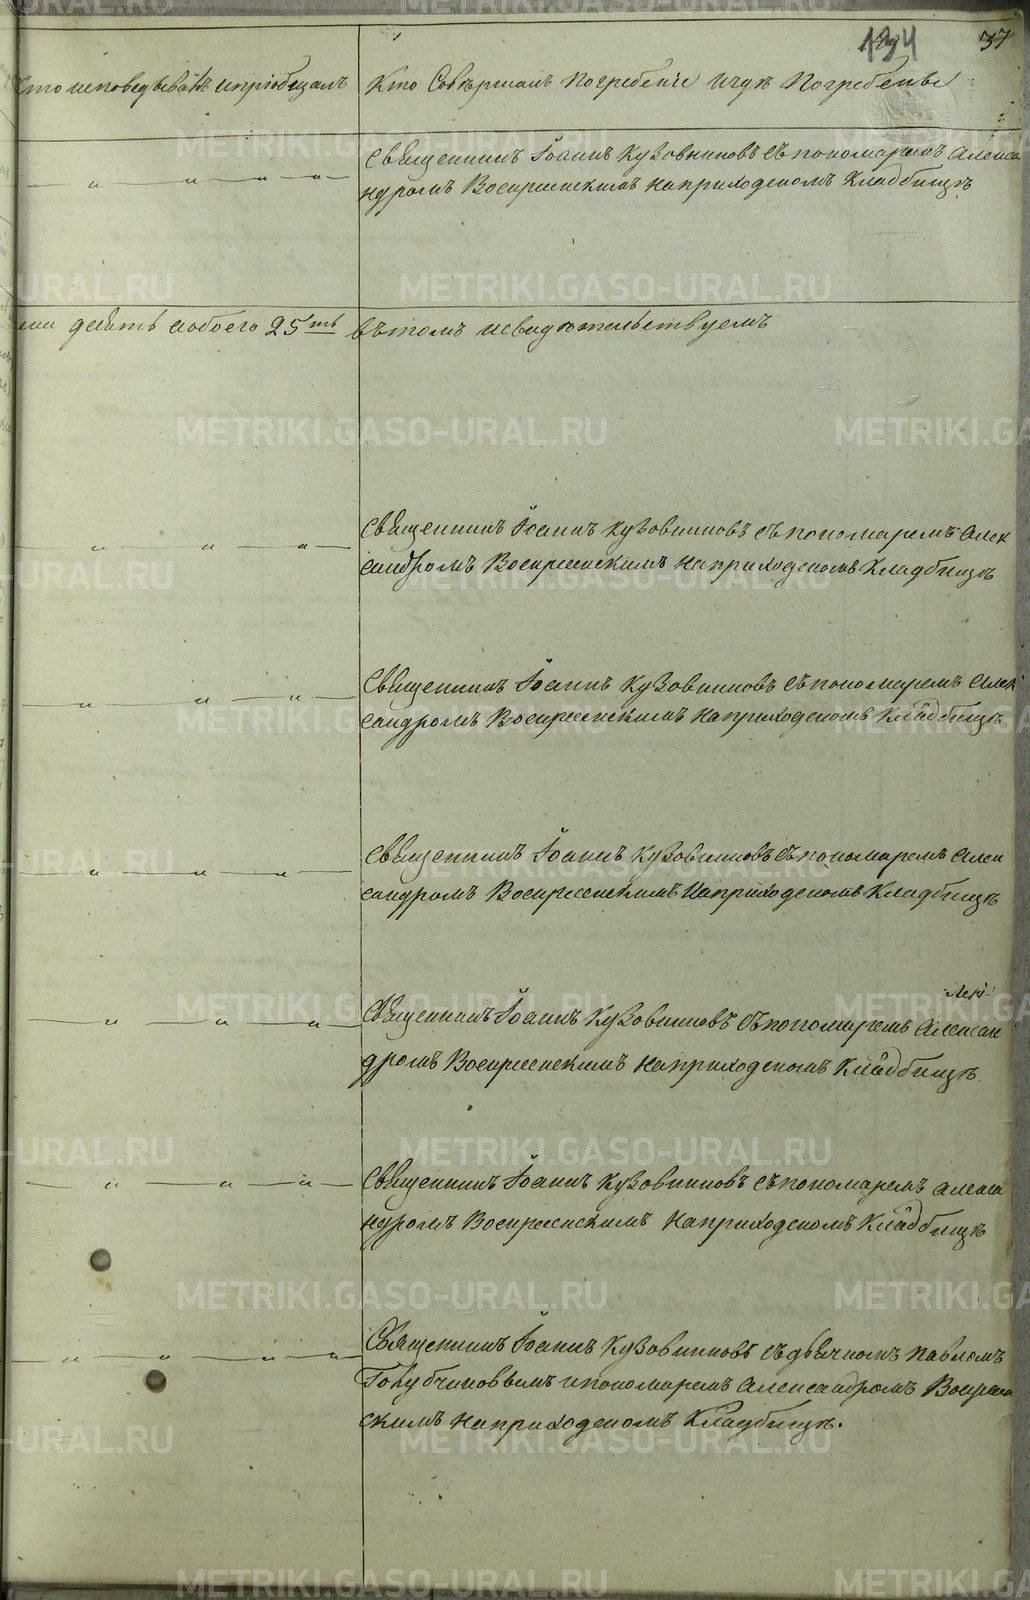 134 37
Кто исповедывалъ и пріобщалъ Кто Совершалъ Погребеніе и гдѣ Погребены
Священникъ Іоаннъ Кузовниковъ съ пономаремъ Алекса
ндромъ Воскресенскимъ на приходскомъ Кладбищѣ
девять обоего 25ть въ томъ и свидѣтельствуемъ
Священникъ Іоаннъ Кузовниковъ съ пономаремъ Алек
сандромъ Воскресенскимъ на приходскомъ Кладбищѣ
Священникъ Іоаннъ Кузовниковъ съ пономаремъ Алек
сандромъ Воскресенскимъ на приходскомъ Кладбищѣ
Священникъ Іоаннъ Кузовниковъ съ пономаремъ Алек
сандромъ Воскресенскимъ на приходскомъ Кладбищѣ
Священникъ Іоаннъ Кузовниковъ съ пономаремъ Алексан
дромъ Воскресенскимъ на приходскомъ Кладбищѣ
Священникъ Іоаннъ Кузовниковъ съ пономаремъ Алекса
ндромъ Воскресенскимъ на приходскомъ Кладбищѣ
Священникъ Іоаннъ Кузовниковъ съ дьячкомъ Павломъ
Голубчиковымъ и пономаремъ Александромъ Воскресен
скимъ на приходскомъ Кладбищѣ.
METRIKI.GASO-URAL.RU